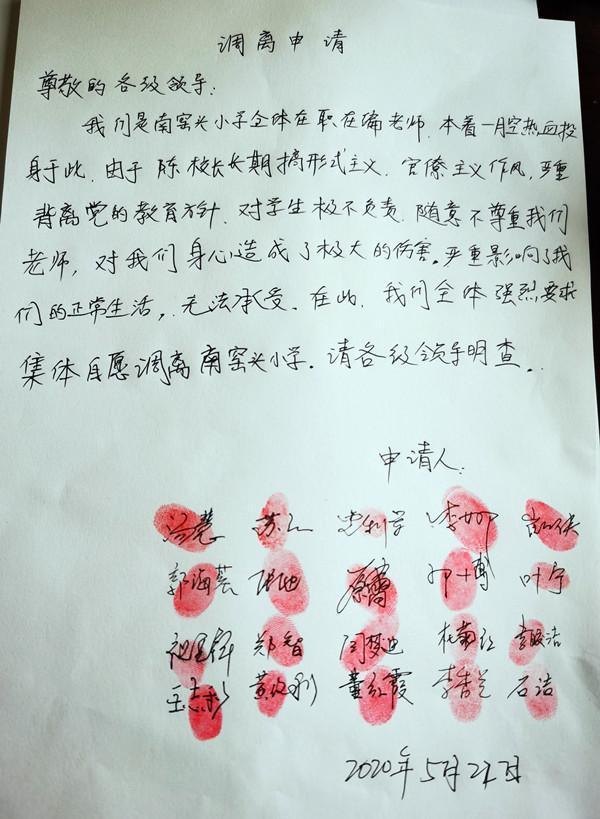 调离申请
尊敬的各级领导:
我们是南窑头小学全体在职在编老师.本着一腔热血投
身于此.由于陈校长长期搞形式主义.官僚主义作风,严重
背离党的教育方针.对学生极不负责.随意不尊重我们
老师,对我们身心造成了极大的伤害。严重影响了我
们的正常生活,无法承受.在此.我们全体强烈要求
集体自愿调离南窑头小学.请各级领导明查.
申请人:
李娜
郭海芸 叶宁
郑智 闫梦迪
董红霞 石洁
2020年5月21日